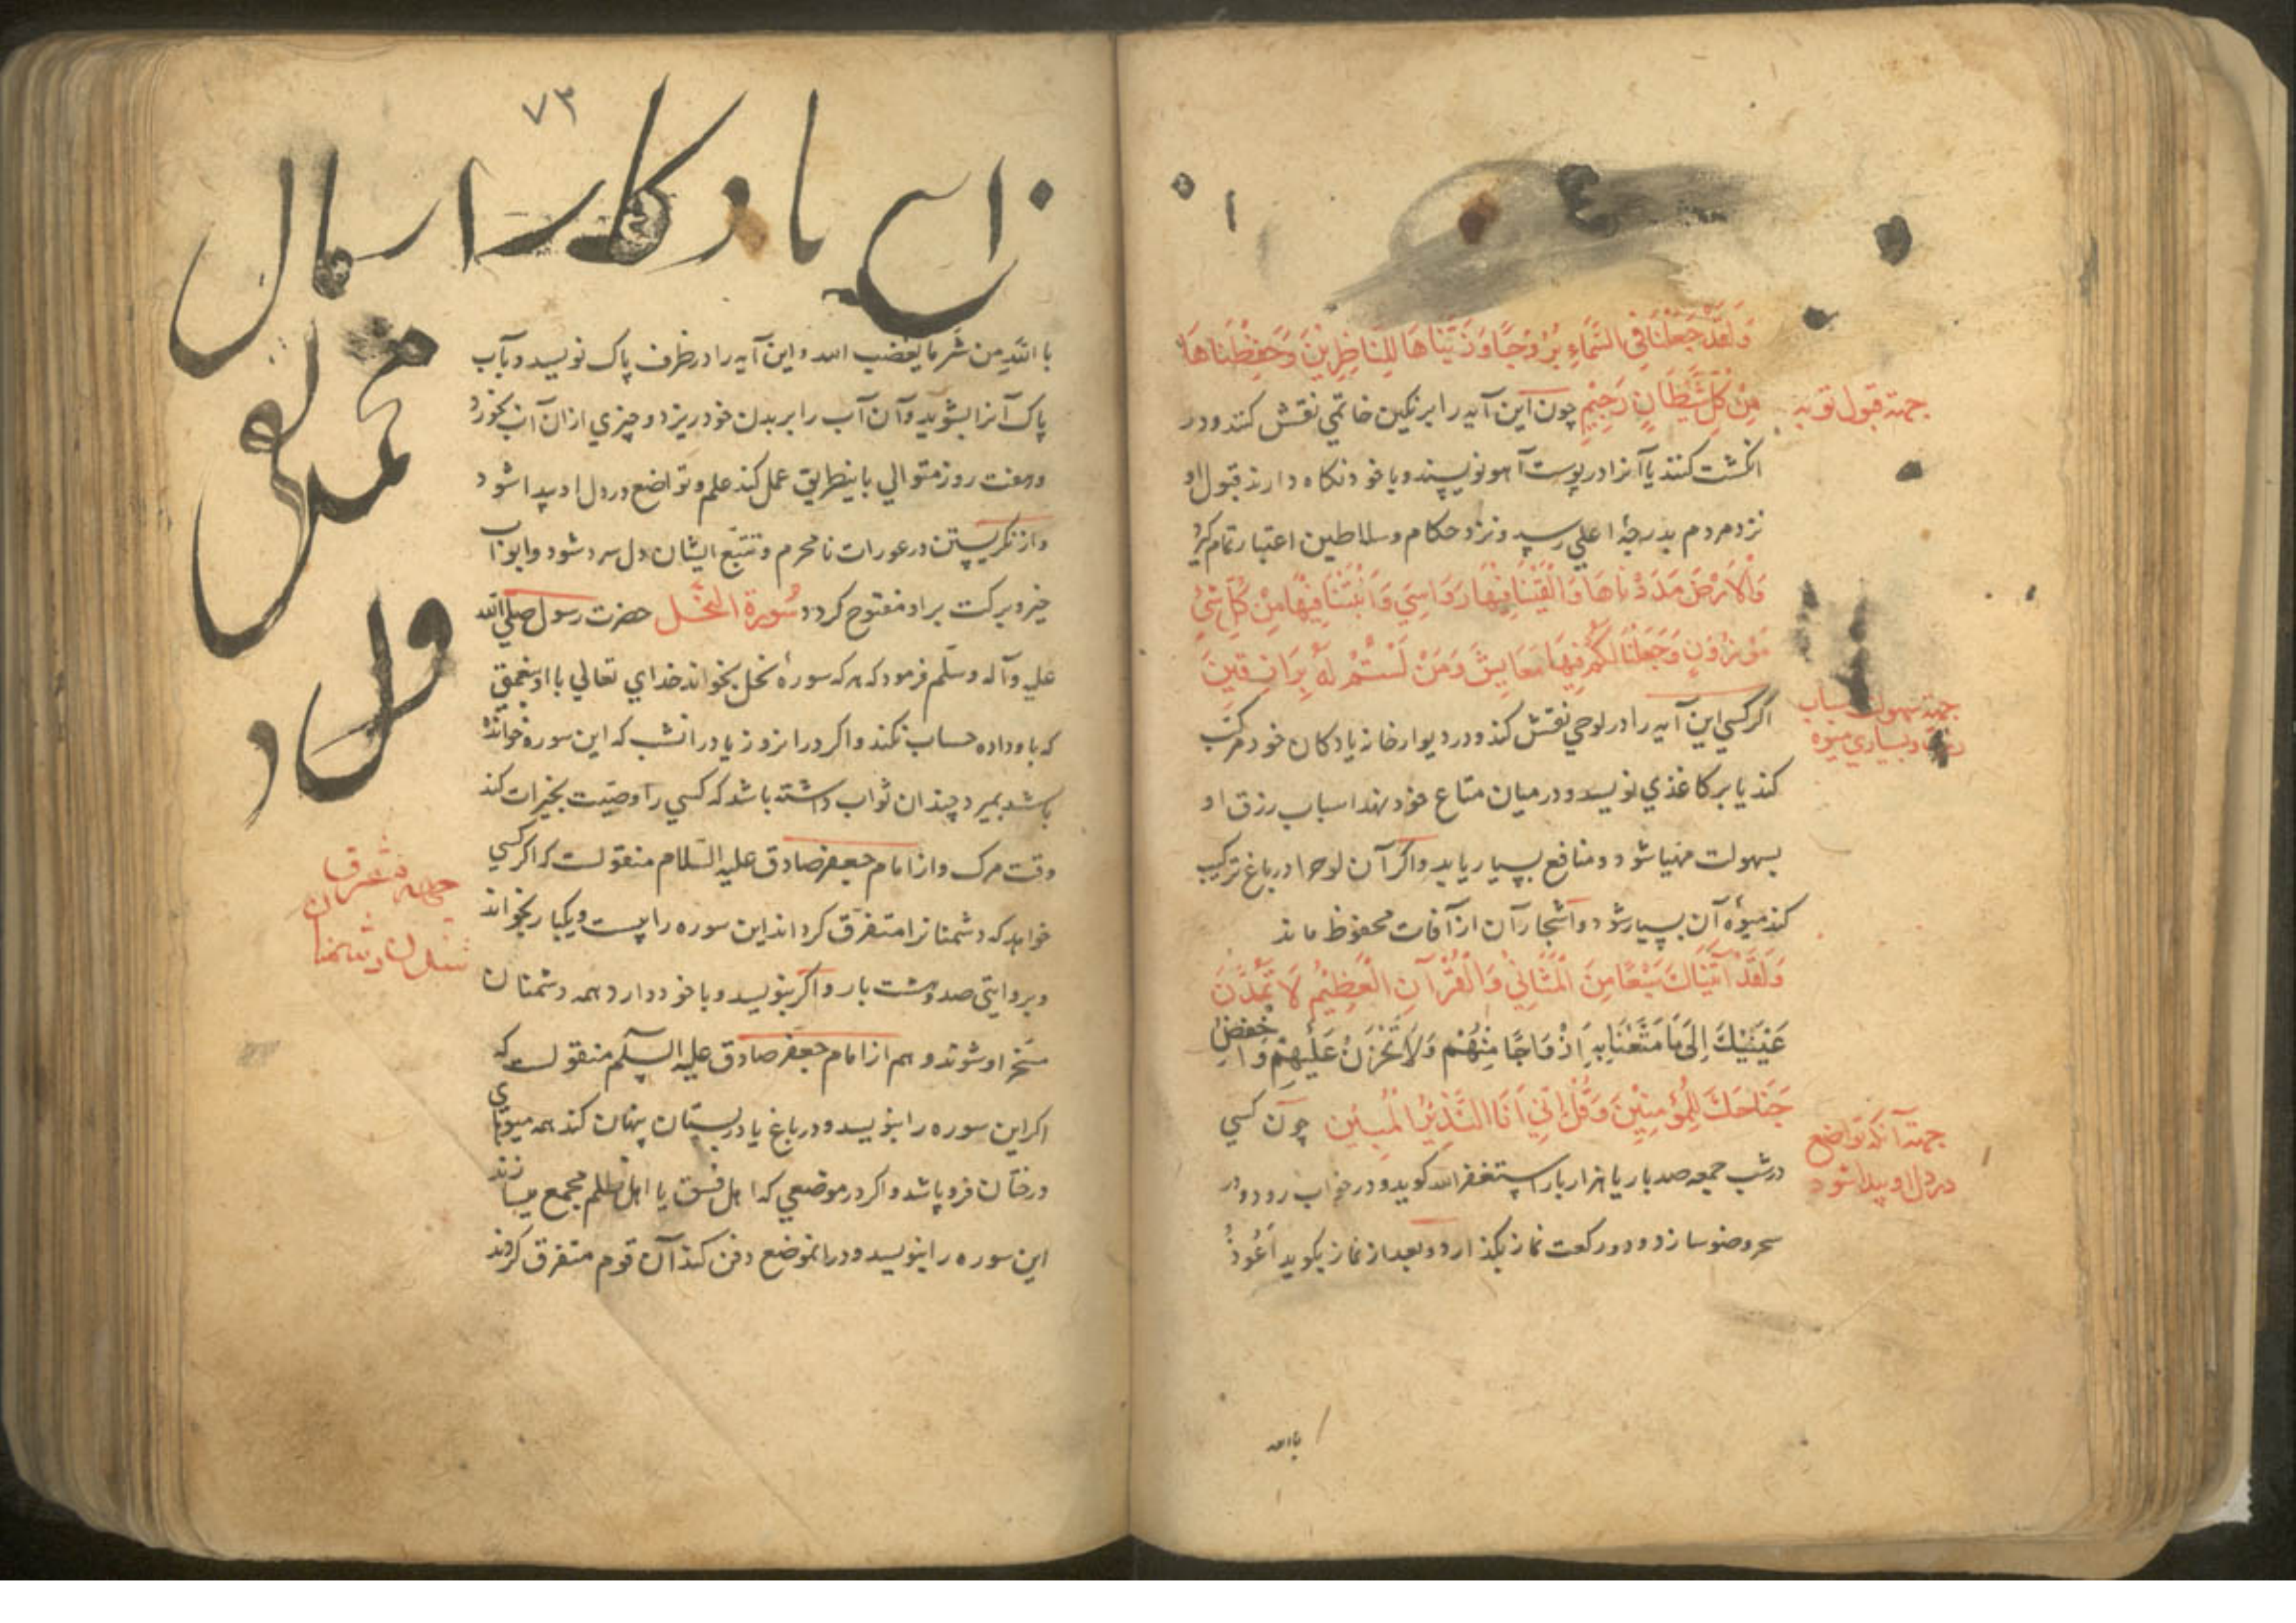 وَلَقَدْ جَعَلْنَا فِي السَّمَاءِ بُرُوجًا وَزَيَّنَّاهَا لِلنَّاظِرِيْنَ وَحَفِظْنَاهَا
مِنْ كُلِّ شَيْطَانٍ رَجِيْمٍ چون این آیه را بر نکین خاتمي نقش کنند و در
جهته قبول توبه
انکشت کنند یا آنرا در پوست آهو نویسند و با خود نکاه دارند قبول او
نزد مردم بدرجهٔ اعلي رسد و نزد حکام و سلاطین اعتبار تمام کیرد
وَالْاَرْضَ مَدَدْنَاهَا وَاَلْقَيْنَا فِيْهَا رَوَاسِيَ وَاَنْبَتْنَا فِيْهَا مِنْ كُلِّ شَيْءٍ
مَوْزُوْنٍ وَجَعَلْنَا لَكُمْ فِيْهَا مَعَايِشَ وَمَنْ لَسْتُمْ لَهُ بِرَازِقِيْنَ
اکر کسي این آیه را در لوحي نقش کند و در دیوار خانه یا دکان خود مرکب
جهته سهولت اسباب
و بسیاري میوه
کند یا بر کاغذي نویسد و در میان متاع خود نهد اسباب رزق او
بسهولت مهیا شود و منافع بسیار یابد و اکر آن لوح را در باغ ترکیب
کند میوهٔ آن بسیار شود و اشجار آن از آفات محفوظ ماند
وَلَقَدْ آتَيْنَاكَ سَبْعًا مِنَ الْمَثَانِيْ وَالْقُرْآنَ الْعَظِيْمَ لَا تَمُدَّنَّ
عَيْنَيْكَ اِلَى مَا مَتَّعْنَا بِهِ اَزْوَاجًا مِنْهُمْ وَلَا تَحْزَنْ عَلَيْهِمْ وَاخْفِضْ
جَنَاحَكَ لِلْمُؤْمِنِيْنَ وَقُلْ اِنِّيْ اَنَا النَّذِيْرُ الْمُبِيْن چون کسي
جهته آنکه تواضع
در دل او پیدا شود
در شب جمعه صد بار یا هزار بار استغفر الله کوید و در خواب رود و در
سحر وضو سازد و دو رکعت نماز بکذارد و بعد از نماز بکوید اَعُوذُ
بالله
۷۳
این یادکار اسمال
محمد
قلی
ولد
بالله من شر ما یغضب الله و این آیه را در ظرف پاک نویسد و بآب
پاک آنرا بشوید و آن آب را بر بدن خود ریزد و چیزي از ان آب بخورد
و هفت روز متوالي باینطریق عمل کند علم و تواضع در دل او پیدا شود
و از نکریستن در عورات نامحرم و تتبع ایشان دل سرد شود و ابواب
خیر و برکت بر او مفتوح کردد سُورة النحل حضرت رسول صلي الله
علیه وآله وسلم فرمود که هر که سورهٔ نحل بخواند خداي تعالي با او بنعمتي
که باو داده حساب نکند و اکر در انروز یا در انشب که این سوره خوانده
باشد بمیرد چندان ثواب داشته باشد که کسي را وصیت بخیرات کند
وقت مرک و از امام جعفر صادق علیه السلام منقولست که اکر کسي
خواهد که دشمنانرا متفرق کرداند این سوره را بیست و یکبار بخواند
جهته متفرق
شدن دشمنان
و بروایتی صد و هشت بار و اکر بنویسد و با خود دارد همه دشمنان
مسخر او شوند و هم از امام جعفر صادق علیه السلم منقولست که
اکر این سوره را بنویسد و در باغ یا در بستان پنهان کند همه میوهاي
درختان فرو پاشد و اکر در موضعي که اهل فسق یا اهل ظلم مجمع میسازند
این سوره را بنویسد و در انموضع دفن کند آن قوم متفرق کردند